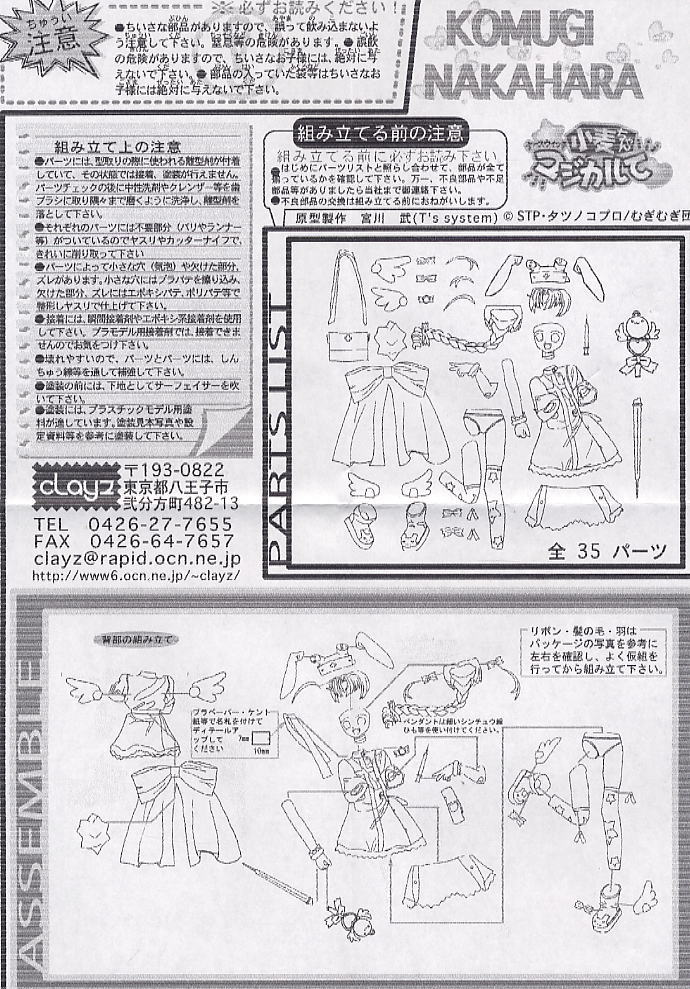 ※ 必ずお読みください!
ちゅうい
注意
●ちいさな部品がありますので、誤って飲み込まないよ
う注意して下さい。窒息等の危険があります。●誤飲
の危険がありますので、ちいさなお子様には、絶対に与
えないで下さい。●部品の入っていた袋等はちいさなお
子様には絶対に与えないで下さい。
KOMUGI
NAKAHARA
組み立て上の注意
●パーツには、型取りの際に使われる離型剤が付着
していて、その状態では接着、塗装が行えません。
パーツチェックの後に中性洗剤やクレンザー等を歯
ブラシに取り隅々まで磨くように洗浄し、離型剤を
落として下さい。
●それぞれのパーツには不要部分（バリやランナー
等）がついているのでヤスリやカッターナイフで、
きれいに削り取って下さい
●パーツによって小さな穴（気泡）や欠けた部分、
ズレがあります。小さな穴にはプラパテを擦り込み、
欠けた部分、ズレにはエポキシパテ、ポリパテ等で
整形しヤスリで仕上げて下さい。
●接着には、瞬間接着剤やエポキシ系接着剤を使用
して下さい。プラモデル用接着剤では、接着できま
せんのでお気をつけ下さい。
●壊れやすいので、パーツとパーツには、しん
ちゅう線等を通して補強して下さい。
●塗装の前には、下地としてサーフェイサーを吹
いて下さい。
●塗装には、プラスチックモデル用塗
料が適しています。塗装見本写真や設
定資料等を参考に塗装して下さい。
組み立てる前の注意
組み立てる前に必ずお読み下さい。
●はじめにパーツリストと照らし合わせて、部品が全て
揃っているかを確認して下さい。万一、不良部品や不足
部品等がありましたら当社まで御連絡下さい。
●不良部品の交換は組み立てる前におねがいします。
ナースウィッチ
小麦ちゃん
マジカルて
原型製作 宮川 武(T's system) © STP・タツノコプロ/むぎむぎ団
PARTS LIST
全 35 パーツ
clayz
〒193-0822
東京都八王子市
弐分方町482-13
TEL 0426-27-7655
FAX 0426-64-7657
clayz@rapid.ocn.ne.jp
http://www6.ocn.ne.jp/~clayz/
ASSEMBLE
背部の組み立て
リボン・髪の毛・羽は
パッケージの写真を参考に
左右を確認し、よく仮組を
行ってから組み立て下さい。
プラペーパー・ケント
紙等で名札を付けて
ディテールア
ップして
ください
7mm
10mm
ペンダントは細いシンチュウ線
ひも等を使い付けてください。